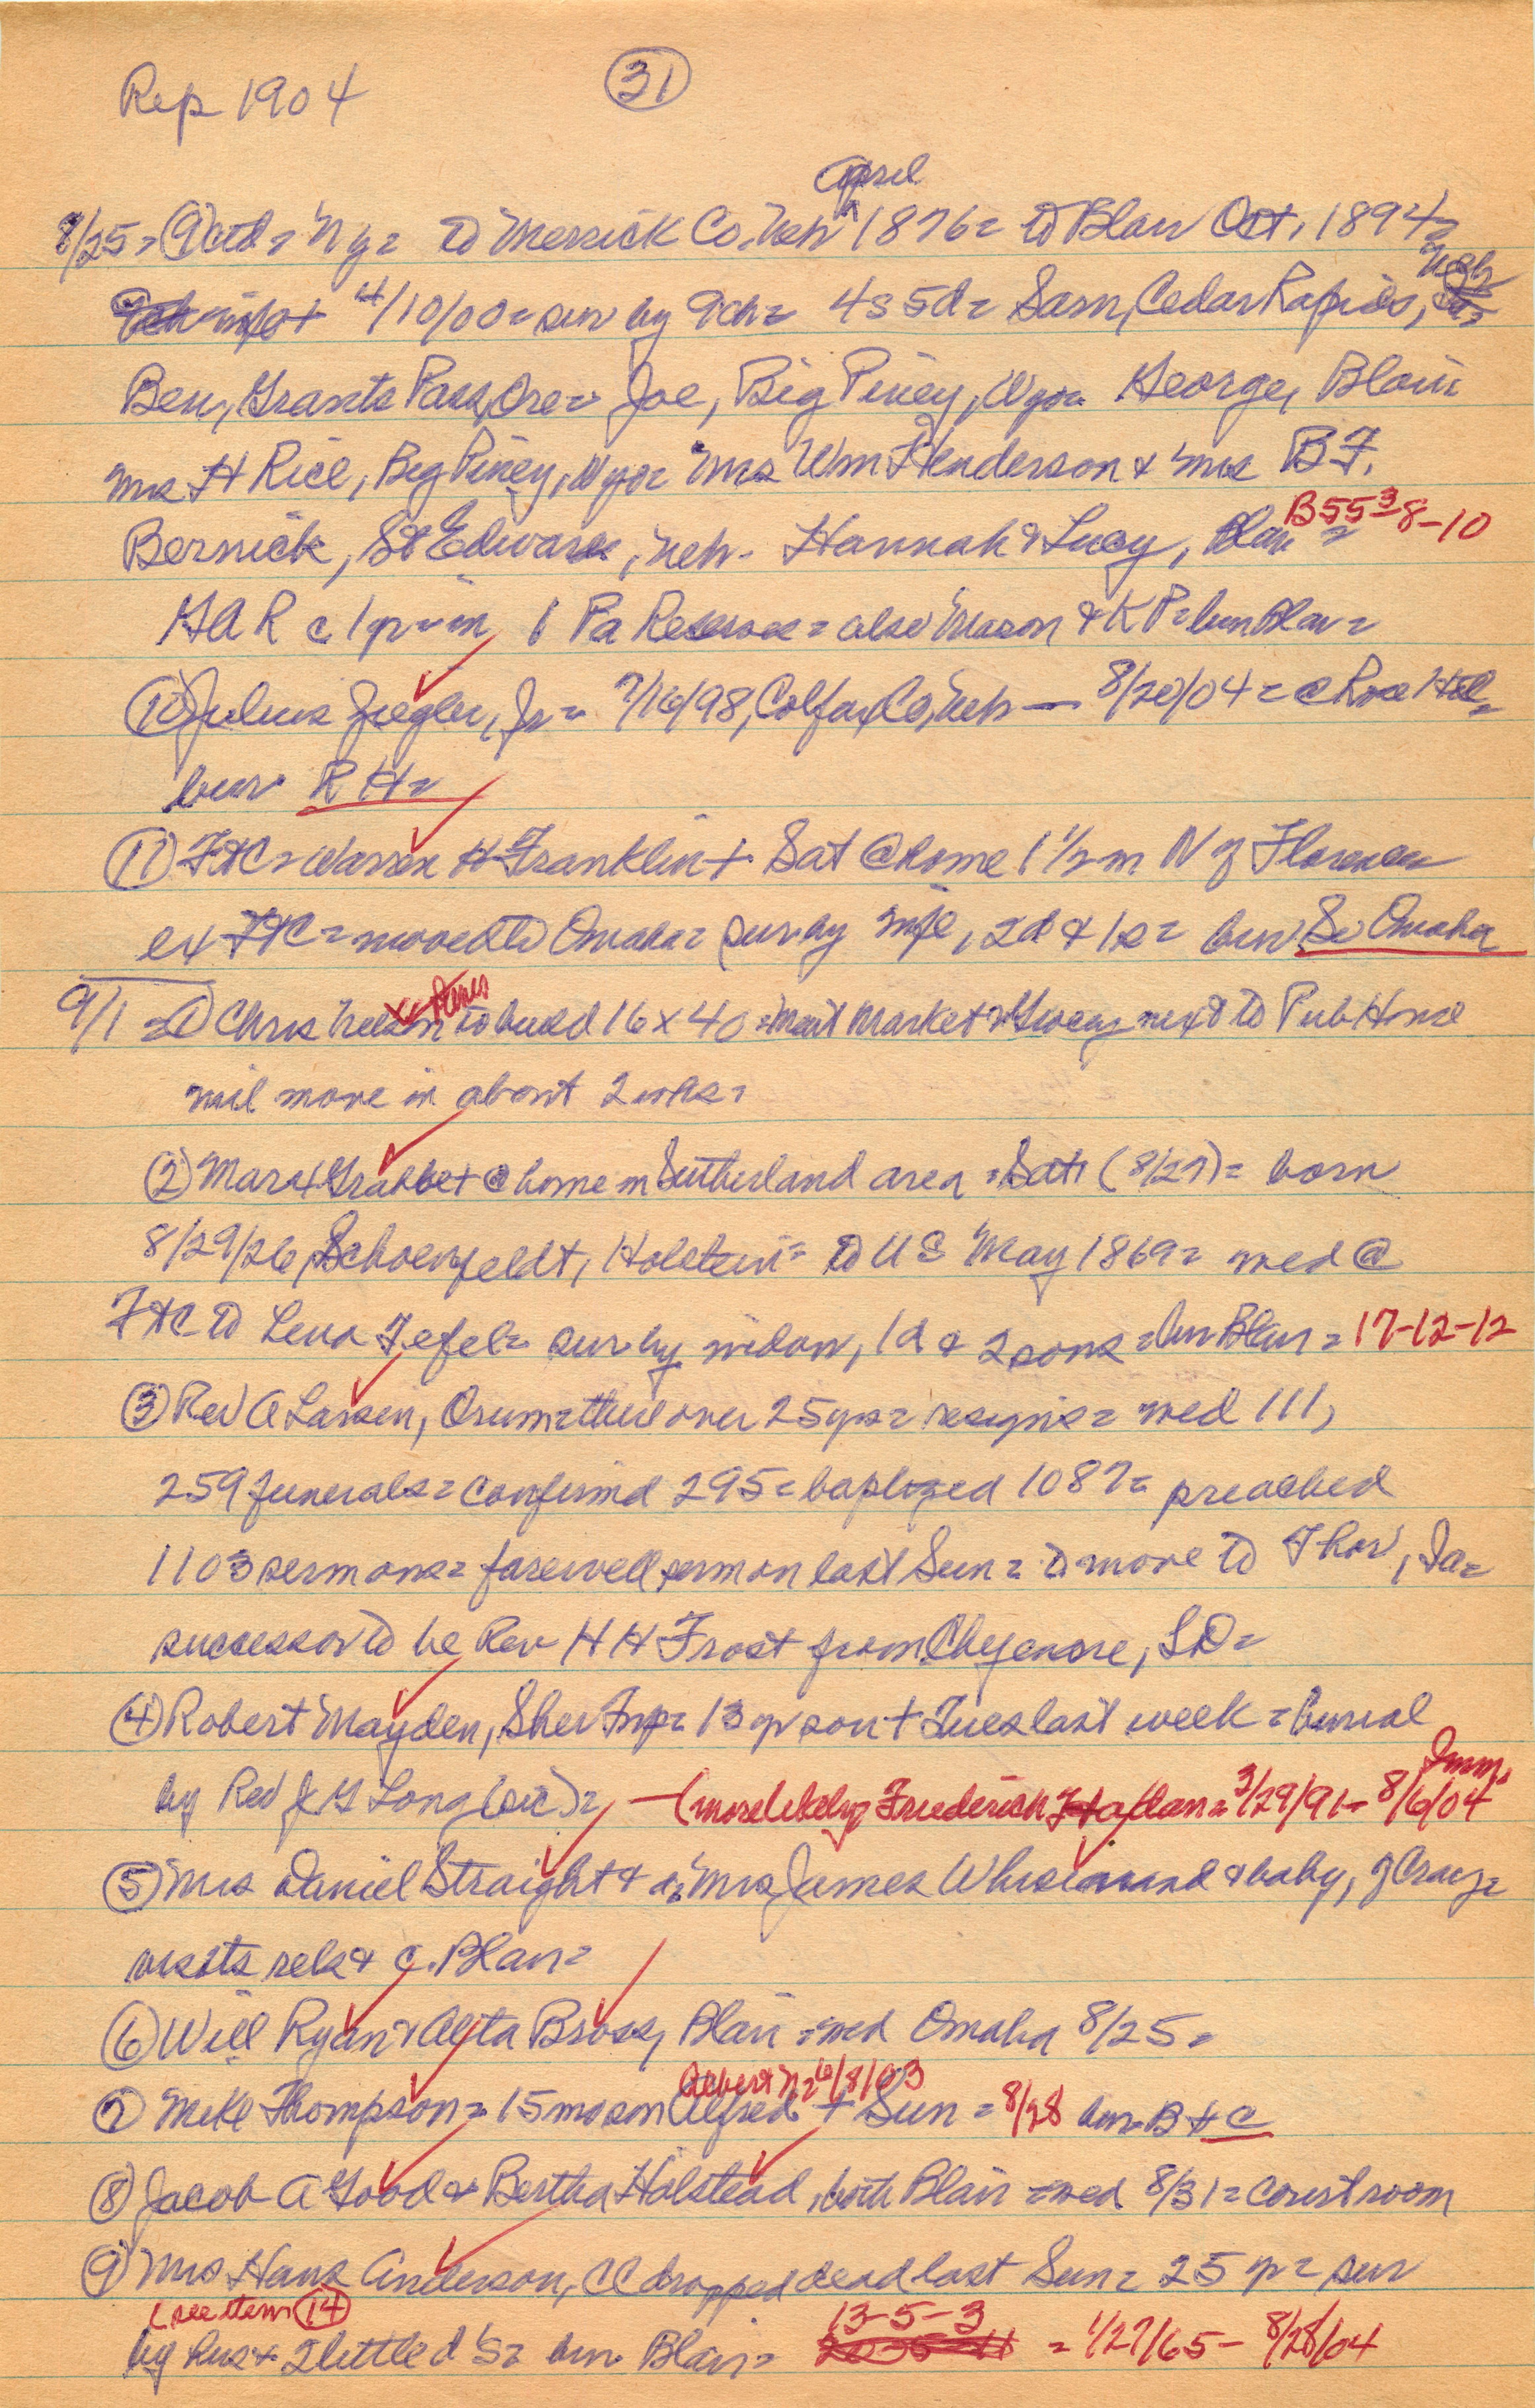 Rep 1904 (31)
April
8/25 = (9) ctd = N Y = to Merrick Co, Neb 1876 = to Blair Oct, 1894 =
Neb
4/10/00 = sur by 9 ch = 4s 5d = Sam, Cedar Rapids,
Ben, Grants Pass, Ore = Joe, Big Piney, Wyo = George, Blair
Mrs H Rice, Big Piney, Wyo = Mrs Wm Henderson & Mrs B F.
Bernick, St Edwards, Neb - Hannah & Lucy, Blair = B 55-3 8-10
GAR c 1 yr = in 1 Pa Reserves = also Mason & K P = bur Blair =
(10) Julius Ziegler, Jr = 7/16/98, Colfax Co, Neb — 8/20/04 = @ Rose Hill =
bur RH =
(11) Ft C = Warren H Franklin + Sat @ home 1 1/2 m N of Florence
ex Ft C = moved to Omaha = sur by wife, 2d & 1s = bur So Omaha
9/1 = (1) Chris Nelson to build 16 x 40 = Meat Market & Grocery next to Pub House
will move in about 2 wks =
(2) Marx Grabbe + @ home in Sutherland area = Sat (8/27) = born
8/29/26, Schoenfeldt, Holstein = to US May 1869 = wed @
Ft C to Lena Tefel = sur by widow, 1d & 2 sons = bur Blair = 17-12-12
(3) Rev A Larsen, Orum = there over 25 yrs = resigns = wed 111,
259 funerals = confirmed 295 = baptized 1087 = preached
1103 sermons = farewell sermon last Sun = to move to Thor, Ia =
successor to be Rev H H Frost from Cheyenne, SD =
(4) Robert Mayden, Sher Twp = 13 yr son + Tues last week = burial
by Rev J G Long (sic) = — (more likely Friederich Haflan = 3/29/91 - 8/6/04 Imm.
(5) Mrs Daniel Straight & d, Mrs James Whisinand & baby, of Craig =
visits rels @ c. Blair =
(6) Will Ryan & Alta Bross, Blair = wed Omaha 8/25 =
Albert N = 6/8/03
(7) Mike Thompson = 15 mo son Alfred + Sun = 8/28 bur B + C
(8) Jacob A Good & Bertha Halstead, both Blair = wed 8/31 = court room
(9) Mrs Hans Anderson, CC dropped dead last Sun = 25 yr = sur
(see item (14) 13-5-3
by hus & 2 little d's = bur Blair = = 1/27/65 - 8/28/04